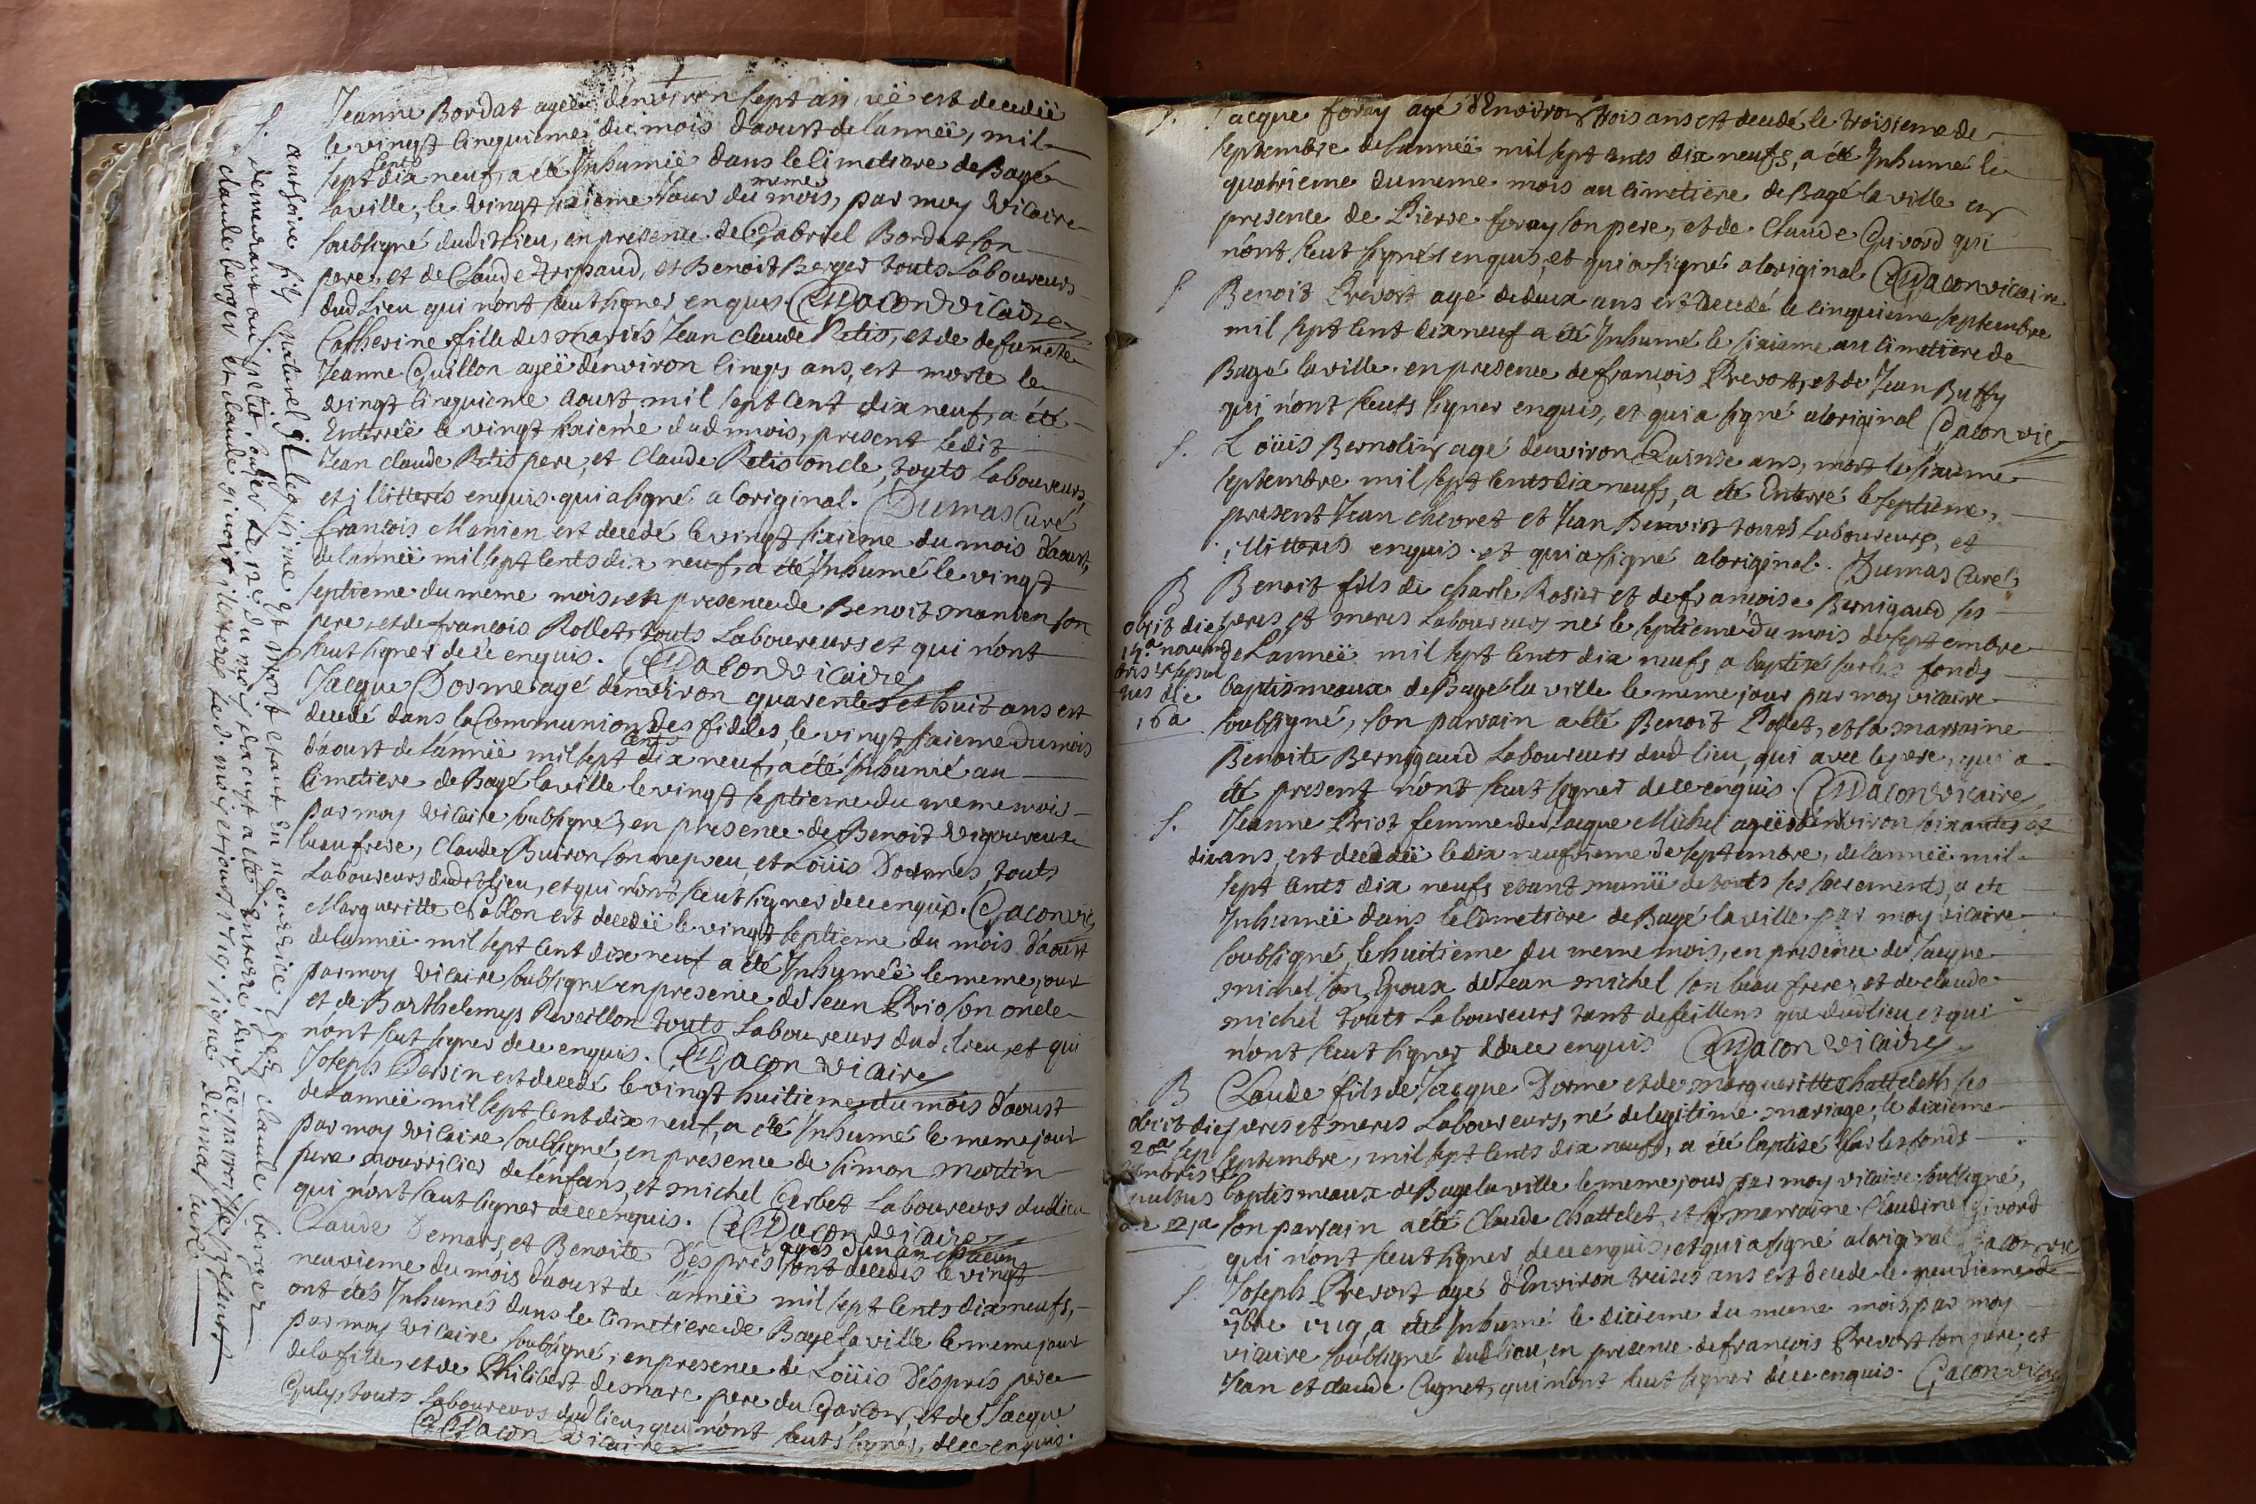 Jeanne Bordat ageë d'environ sept an, est decedeë
le vingt cinquieme du mois d'aoust de l'anneë, mil
sept cents dix neuf, a été Inhumeë dans le Cimetiere de Bagé
laville, le vingt sixieme Jour du meme mois, par moy vicaire
soubsigné dudit lieu, en presence de Gabriel Bordat son
pere, et de Claude et Benoit Berger touts Laboureurs
dud lieu qui n'ont sceut signer enquis. Dacon vicaire
Catherine fille des mariés Jean claude Retis, et de defuncte
Jeanne Guillon ageë d'environ cinqs ans, est morte le
vingt cinquieme aoust, mil sept cent dix neuf, a été
Enterreë le vingt sixieme dud mois, present ledit
Jean claude Retis pere, et Claude Retis oncle, touts laboureurs,
et illitterés enquis. qui a signé a l'original. Dumas Curé
francois Manien est decedé le vingt sixieme du mois d'aoust,
de l'anneë mil sept cents dix neuf, a été Inhumé le vingt
septieme du meme mois, en presence de Benoit manien son
pere, et de francois Rollet, touts Laboureurs et qui n'ont
sceut signer de ce enquis. Dacon vicaire
Jacque Dorme agé d'environ quarente et huit ans est
decedé dans la Communion des fideles, le vingt sixieme du mois
d'aoust de l'anneë mil sept cents dix neuf, a été Inhumé au
Cimetiere de Bagé laville le vingt septieme du meme mois
par moy vicaire soubsigné, en presence de Benoit vigoureux
beaufrere, Claude Buiron son nepveu, et Loüis Dormes, touts
Laboureurs dudit lieu, et qui n'ont sceut signer de ce enquis. Dacon vic
Margueritte Chollon est decedeë le vingt septieme du mois d'aoust
de l'anneë mil sept cent dix neuf a été Inhumeë le meme jour
par moy vicaire soubsigné en presence de Jean Prio son oncle
et de Barthelemy Reveillon touts Laboureurs dud. lieu, et qui
n'ont sceut signer de ce enquis. Dacon vicaire
Joseph Persin est decedé le vingt huitieme du mois d'aoust
de l'anneë mil sept cent dix neuf, a été Inhumé le meme jour
par moy vicaire soubsigné, en presence de simon martin
pere nourricier de l'enfans, et michel Cerbet Laboureurs dud lieu
qui n'ont sceut signer de ce enquis. Dacon vicaire
Claude Demars, et Benoite Déspres agés d'un an chacun sont decedés le vingt
neuvieme du mois d'aoust de l'anneë mil sept cents dix neufs,
ont étés Inhumés dans le Cimetiere de Bage la ville le meme jour
par moy vicaire soubsigné, en presence de Loüis Déspres pere
de la fille, et de Philibert demarc pere du Garcon, et de Jacque
Guly, touts Laboureurs dud lieu, qui n'ont sceut signer, de ce enquis.
Dacon vicaire
S. antoine fils Naturel et legitime et mort etant en nourrice chez claude berger
demeurant au petit le 12e du mois d'aoust a été Enterré, dans ce cimetiere presents
claude berger et claude givord illiterés le d. mois et jour 1719. signé, dumas curé
S. Jacque foray agé d'Environ trois ans est decedé le troisieme de
septembre de l'anneë mil sept cents dix neufs, a été Inhumé le
quatrieme du meme mois au cimetiere de Bagé la ville en
presence de Pierre foray son pere, et de Claude Givord qui
n'ont sceut signés enquis, et qui a signé a loriginal Dacon vicaire
S. Benoit Prevost agé de deux ans est decedé le cinquieme septembre
mil sept cent dix neuf a été Inhumé le sixieme au Cimetiere de
Bagé laville. en presence de francois Prevost, et de Jean Buffy
qui n'ont sceuts signer enquis, et qui a signé a loriginal Dacon vic
S. Loüis Bernolin agé denviron Quinse ans, mort le sixieme
septembre mil sept cents dix neufs, a été Enterré le septieme,
present Jean chevret et Jean Benoist touts Laboureurs, et
illitterés enquis. et qui a signé a loriginal. Dumas Curé
B Benoit fils de charle Rosier et de francoise Bernigaud ses
obiit die peres et meres Laboureurs né le septieme du mois de septembre
15a novem de Lanneë mil sept cents dix neufs a baptisé sur les fonds
bris sepul baptismeaux de Bagé la ville le meme jour par moy vicaire
tus die
16a soubsigné, son parrain a été Benoit Polet, et sa marraine
Benoite Bernigaud Laboureurs dud lieu, qui avec le pere, qui a
été present n'ont sceut signer de ce enquis. Dacon vicaire
S. Jeanne Priot femme de Jacque Michel ageë d'environ soixantes et
dix ans, est decedeë le dix neufvieme de septembre, de lanneë mil
sept cents dix neufs etant munië de touts ses sacrements, a ete
Inhumeë dans le Cimetiere de Bagé laville par moy vicaire
soubsigné, le huitieme du meme mois, en presence de Jacque
michel son Epoux de Jean michel son beau frere, et de claude
michel touts Laboureurs tant de feillens que dud lieu et qui
n'ont sceut signer de ce enquis Dacon vicaire
B Claude fils de Jacque Dorme et de marguerite Chattelets ses
obiit die peres et meres Laboureurs, né de legitime mariage, le dixieme
20a sep septembre, mil sept cents dix neufs, a été baptisé sur les fonds
tembris
sepultus baptismeaux de Bage la ville le meme jour par moy vicaire soubsigné,
die 21a son parrain a été Claude Chattelet, et sa marraine Claudine Givord
qui n'ont sceut signer, de ce enquis, et qui a signé a loriginal Dacon vic
S. Joseph Prevost agé d'Environ treises ans est decede le neuvieme de
7bre 1719, a été Inhumé le dixieme du meme mois, par moy
vicaire soubsigné dud lieu, en presence de francois Prevost son pere, et
Jean et claude Cugnet, qui n'ont sceut signer de ce enquis. Dacon vicaire